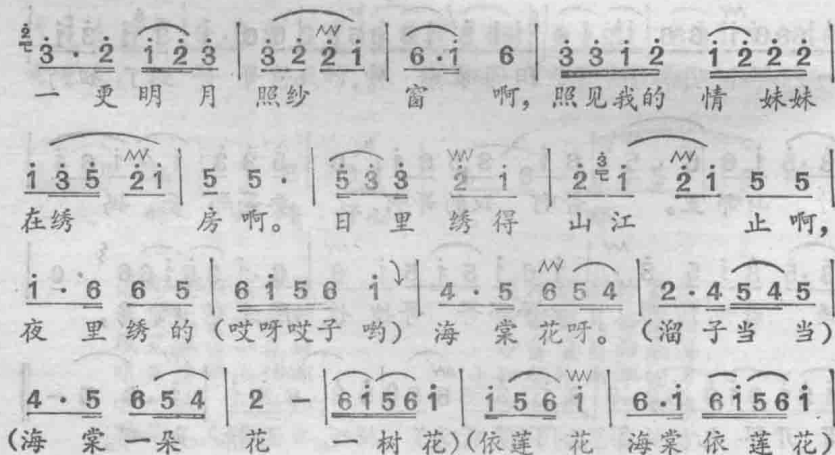 3 3 · 2 1 2 3 | 3 2 2 1 | 6 · 1 6 | 3 3 1 2 1 2 2 2
一 更 明 月 照 纱 窗 啊, 照 见 我 的 情 妹 妹
1 3 5 2 1 | 5 5 · | 5 3 3 2 1 | 2 3 1 2 1 5 5 |
在 绣 房 啊。 日 里 绣 得 山 江 止 啊,
1 · 6 6 5 | 6 1 5 6 1 | 4 · 5 6 5 4 | 2 · 4 5 4 5 |
夜 里 绣 的 (哎 呀 哎 子 哟) 海 棠 花 呀。 (溜 子 当 当)
4 · 5 6 5 4 | 2 – | 6 1 5 6 1 | 1 5 6 1 | 6 · 1 6 1 5 6 1 |
(海 棠 一 朵 花 一 树 花) (依 莲 花 海 棠 依 莲 花)